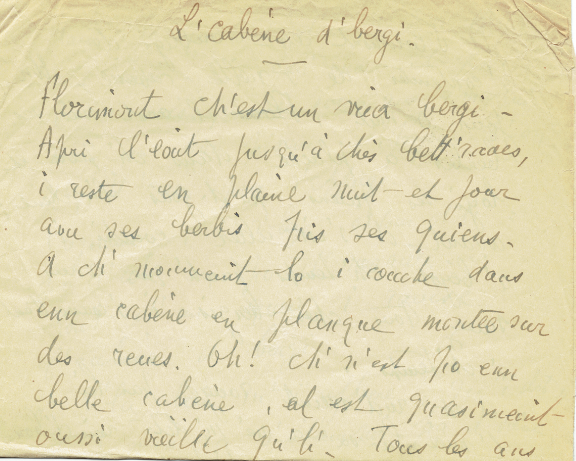 L'cabène d'bergi.
Florimont ch'est un viux bergi -
Apri l'eoût jusqu'à chés bett'raves,
i reste en plaine nuit et jour
avu ses berbis pis ses quiens.
A ch'moumeint lo i couche dans
enn cabène en planque montée sur
des reues. Oh! ch'n'est po enn
belle cabène, al est quasimeint
oussi vieille qu'li. Tous les ans